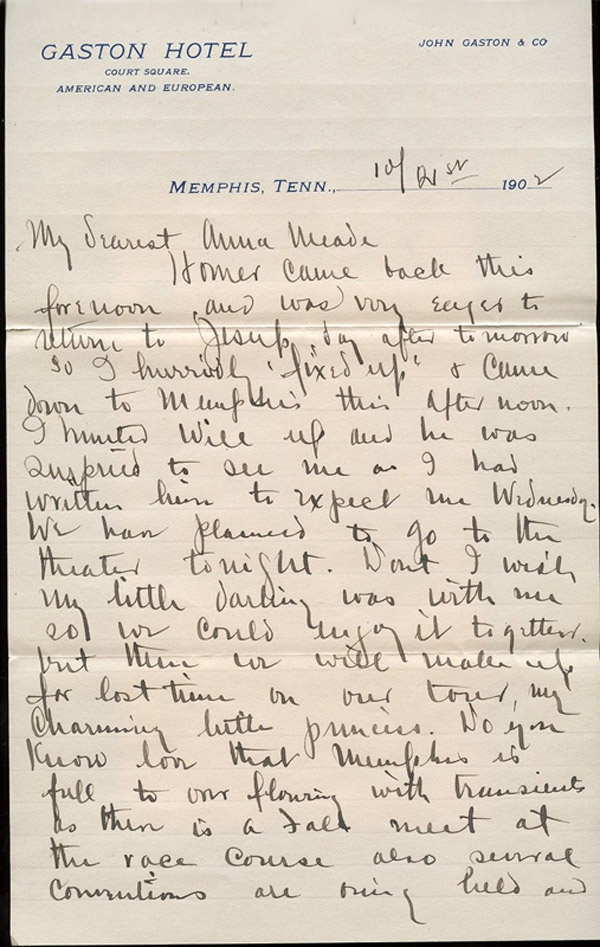 GASTON HOTEL
COURT SQUARE.
AMERICAN AND EUROPEAN.
JOHN GASTON & CO
MEMPHIS, TENN., 10/21st 1902
My dearest Anna Meade
Homer came back this
forenoon, and was very eager to
return to Jesup, day after tomorrow
so I hurridly "fixed up" & came
down to Memphis this afternoon.
I hunted Will up and he was
surprised to see me as I had
written him to expect me Wednesday.
We have planned to go to the
theater tonight. Dont I wish
my little darling was with me
so we could enjoy it together.
but then we will make up
for lost time on our tour, my
charming little princess. Do you
know love that Memphis is
full to over flowing with transients
as there is a Fall meet at
the race course also several
conventions are being held and